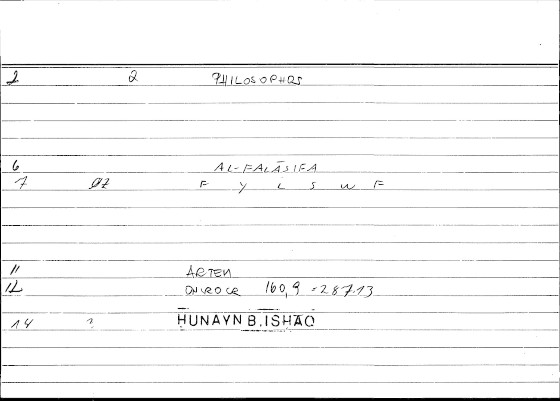 2 2 PHILOSOPHOS
6 AL-FALĀSIFA
7 02 F Y L S W F
11 ARTEM
12 ONIROCR 160,9 = 287.13
14 2 HUNAYN B. ISHĀQ